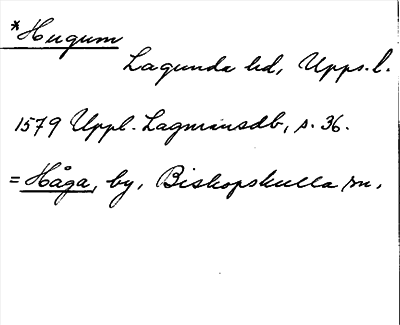 *Hugum
Lagunda hd, Upps. l.
1579 Uppl. Lagmansdb, s. 36.
= Håga, by, Biskopskulla sn.